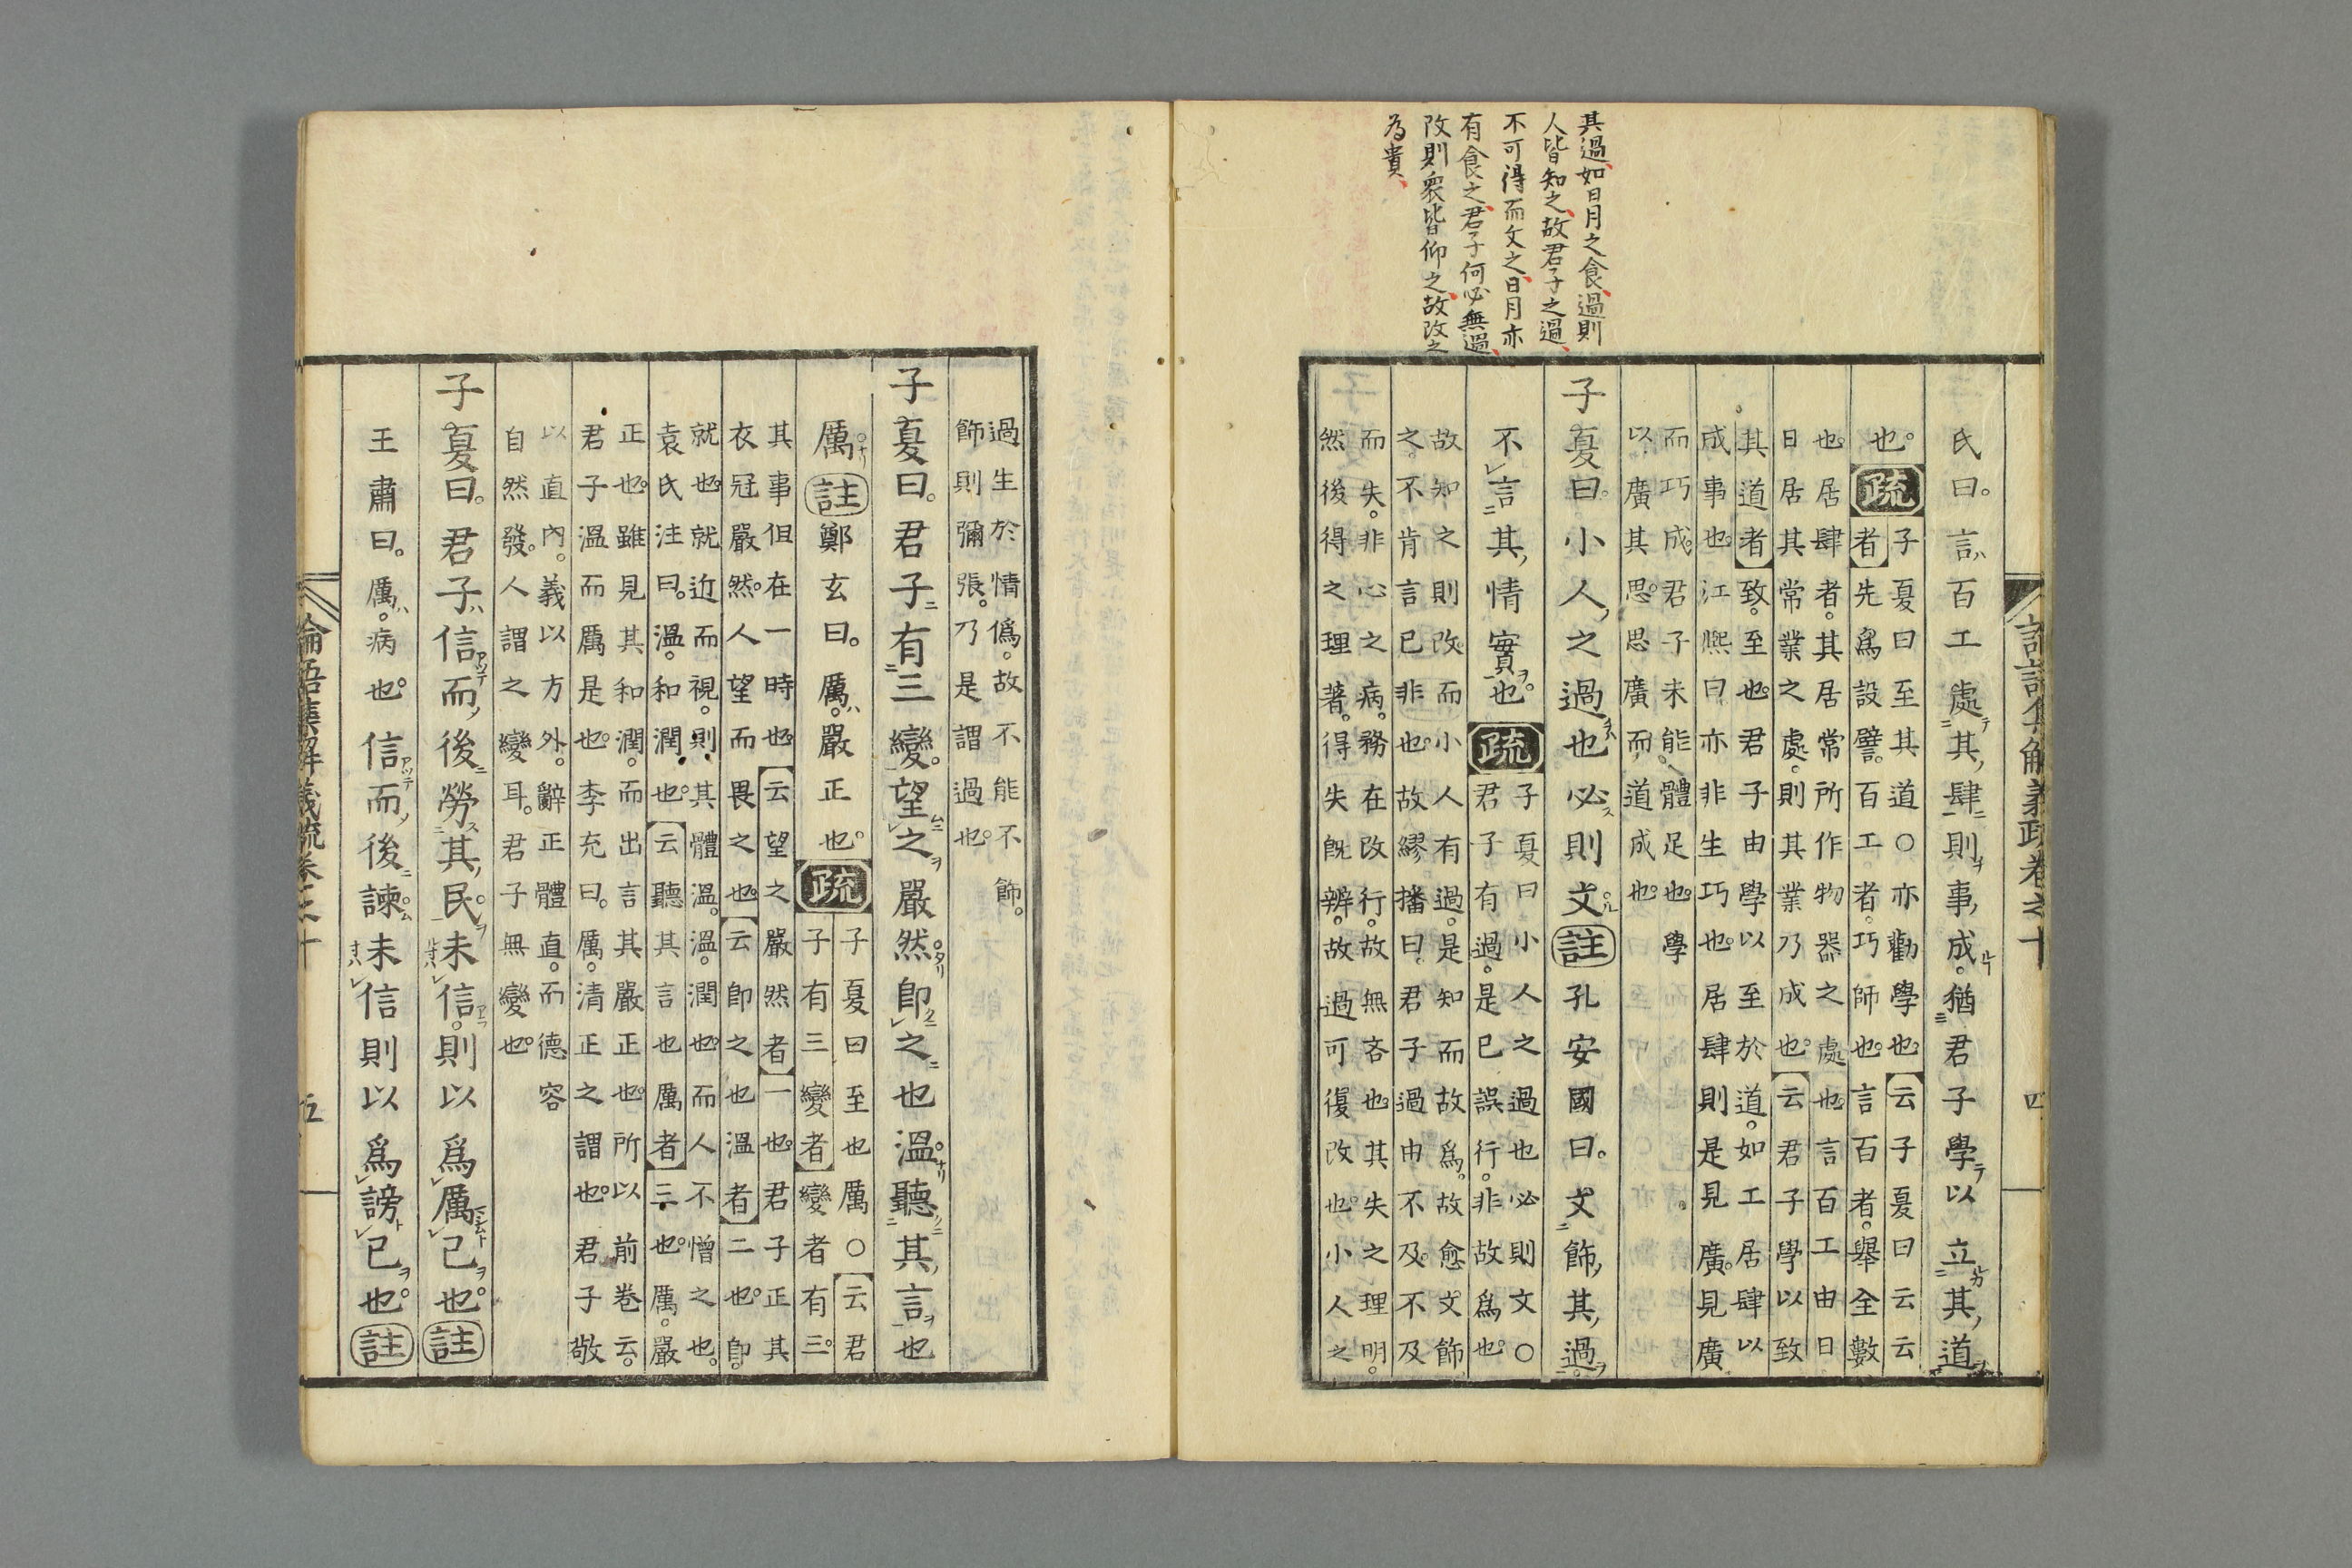 其過如日月之食過則
人皆知之故君子之過
不可得而文之日月亦
有食之君子何必無過
改則衆皆仰之故改之
為貴
論語集解義疏卷之十
四
氏曰。言百工處其肆則事成。猶君子學以立其道
也。疏
子夏曰至其道○亦勸學也。云子夏曰云云
者先爲設譬。百工者。巧師也。言百者。舉全數
也。居肆者。其居常所作物器之處也。言百工由日
日居其常業之處。則其業乃成也。云君子學以致
其道者致。至也。君子由學以至於道。如工居肆以
成事也。江熙曰亦非生巧也。居肆則是見廣。見廣
而巧成。君子未能體足也。學
以廣其思。思廣而道成也。
子夏曰。小人之過也必則文註孔安國曰。文飾其過
不言其情實也。疏
子夏曰小人之過也必則文○
君子有過。是已誤行。非故爲也。
故知之則改。而小人有過。是知而故爲。故愈文飾
之。不肯言已非也。故繆播曰。君子過由不及。不及
而失。非心之病。務在改行。故無吝也。其失之理明。
然後得之理著。得失既辨。故過可復改也。小人之
過生於情僞。故不能不飾。
飾則彌張。乃是謂過也。
子夏曰。君子有三變。望之嚴然卽之也溫聽其言也
厲註鄭玄曰。厲。嚴正也。疏
子夏曰至也厲○云君
子有三變者變者有三。
其事但在一時也。云望之嚴然者一也。君子正其
衣冠嚴然。人望而畏之也。云卽之也溫者二也。卽。
就也。就近而視。則其體溫。溫。潤也。而人不憎之也。
袁氏注曰。溫。和潤也。云聽其言也厲者三也。厲。嚴
正也。雖見其和潤。而出言其嚴正也。所以前卷云。
君子溫而厲是也。李充曰。厲。清正之謂也。君子敬
以直內。義以方外。辭正體直。而德容
自然發。人謂之變耳。君子無變也。
子夏曰。君子信而後勞其民未信。則以爲厲己也。註
王肅曰。厲。病也。信而後諫未信則以爲謗己也。註
論語集解義疏卷之十
五